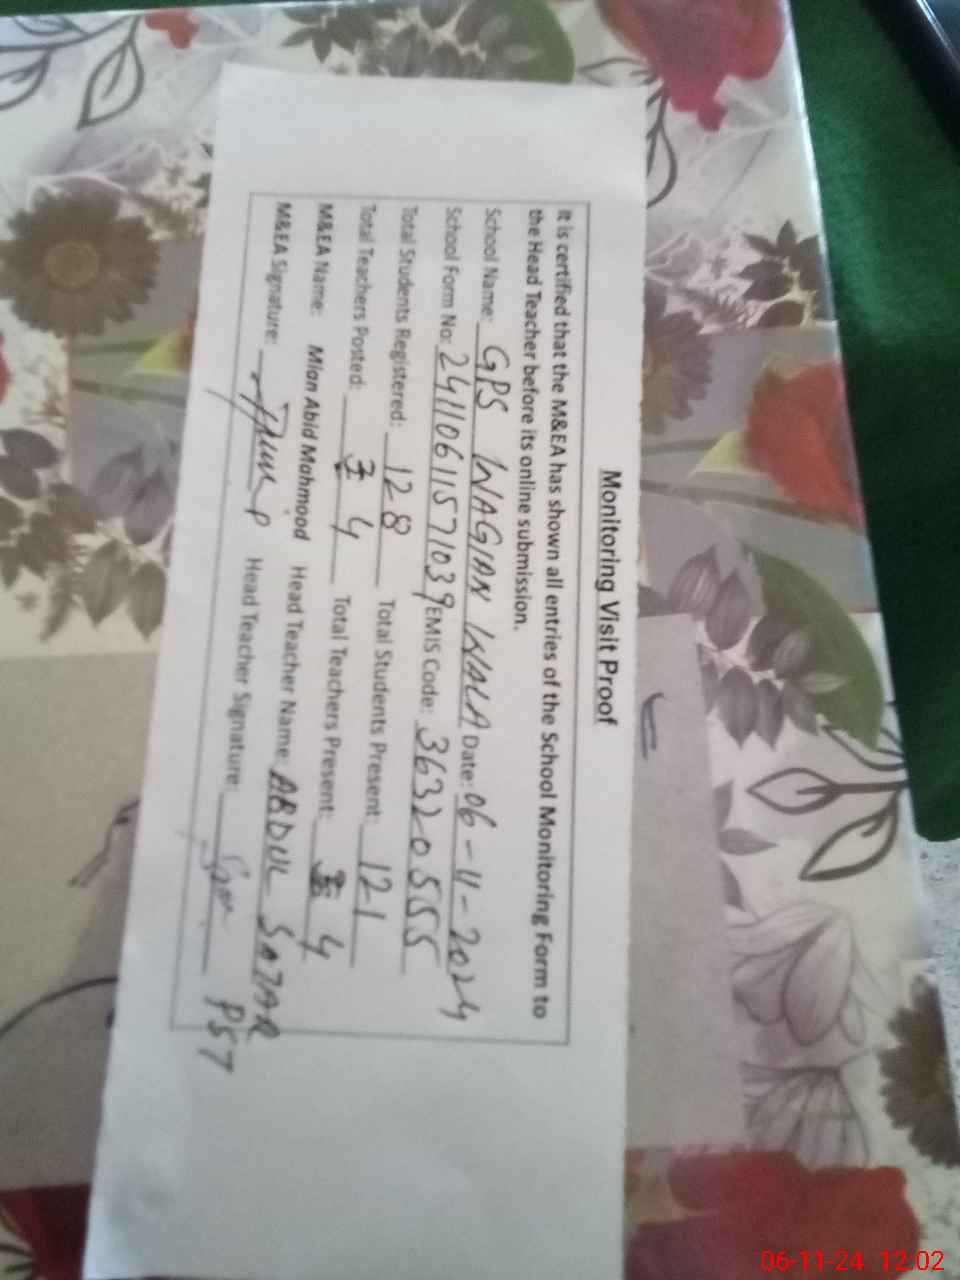 Monitoring Visit Proof
It is certified that the M&EA has shown all entries of the School Monitoring Form to
the Head Teacher before its online submission.
School Name: GPS WAGIAN WALA Date: 06-11-2024
School Form No: 24110611571039 EMIS Code: 36320555
Total Students Registered: 128 Total Students Present: 121
Total Teachers Posted: 4 Total Teachers Present: 4
M&EA Name: Mian Abid Mahmood Head Teacher Name: ABDUL SATAR
M&EA Signature: Head Teacher Signature: PST
06-11-24 12:02